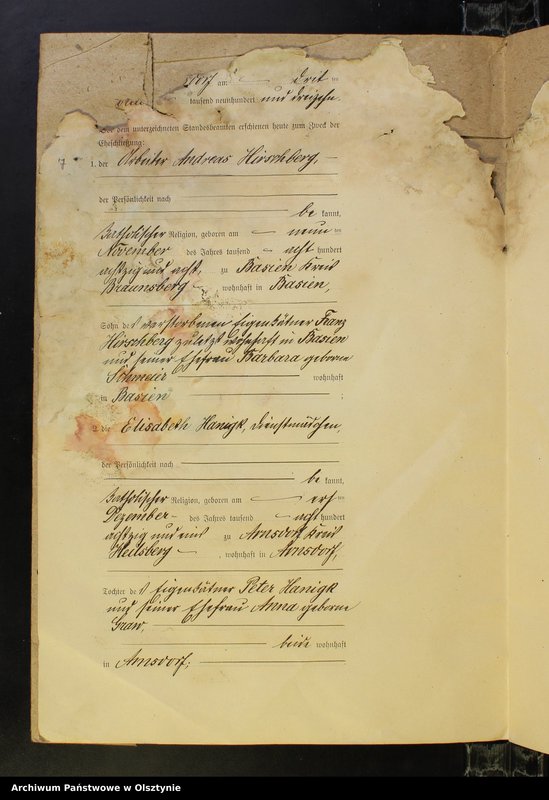 dorf am drit ten
tausend neunhundert und dreizehn.
Vor dem unterzeichneten Standesbeamten erschienen heute zum Zweck der
Eheschließung:
1. der Arbeiter Andreas Hirschberg,
der Persönlichkeit nach
be kannt,
katholischer Religion, geboren am neun ten
November des Jahres tausend acht hundert
achtzig und acht, zu Basien Kreis
Braunsberg, wohnhaft in Basien,
Sohn des verstorbenen Eigenkätner Franz
Hirschberg zuletzt wohnhaft in Basien
und seiner Ehefrau Barbara geborne
Schmeier wohnhaft
in Basien ;
2. die Elisabeth Hanigk, Dienstmädchen,
der Persönlichkeit nach
be kannt,
katholischer Religion, geboren am ers ten
Dezember des Jahres tausend acht hundert
achtzig und eins zu Arnsdorf Kreis
Heilsberg, wohnhaft in Arnsdorf,
Tochter des Eigenkätner Peter Hanigk
und seiner Ehefrau Anna geborne
Graw,
beide wohnhaft
in Arnsdorf;
Archiwum Państwowe w Olsztynie